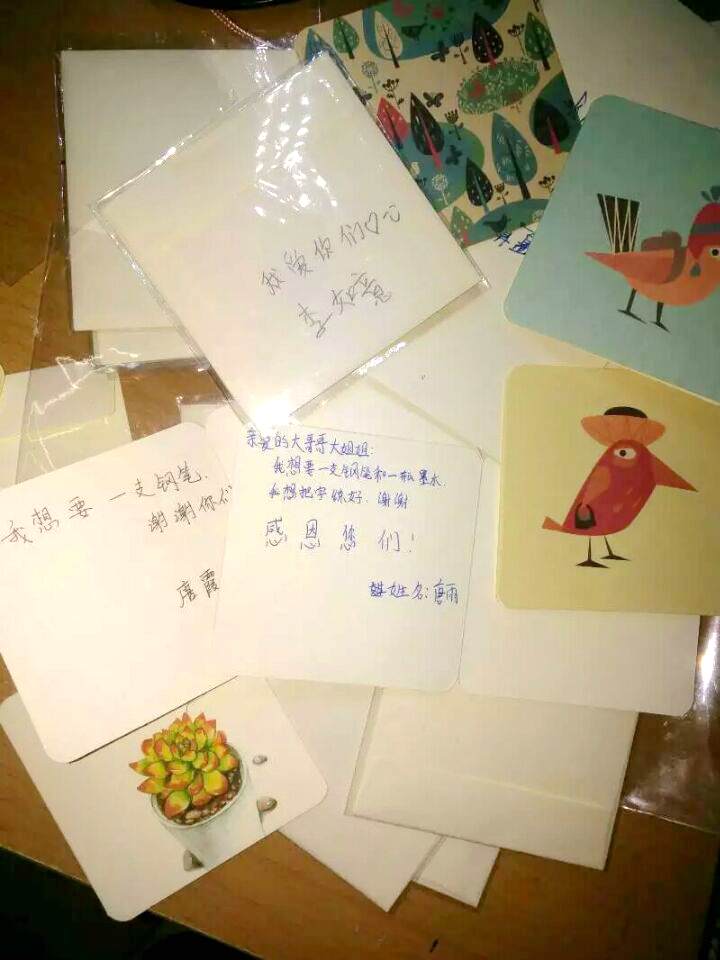 我爱你们♡
李如意
我想要一支钢笔.
谢谢你们
唐霞
亲爱的大哥哥大姐姐:
我想要一支钢笔和一瓶墨水.
我想把字练好.谢谢
感恩您们!
姓名:唐雨